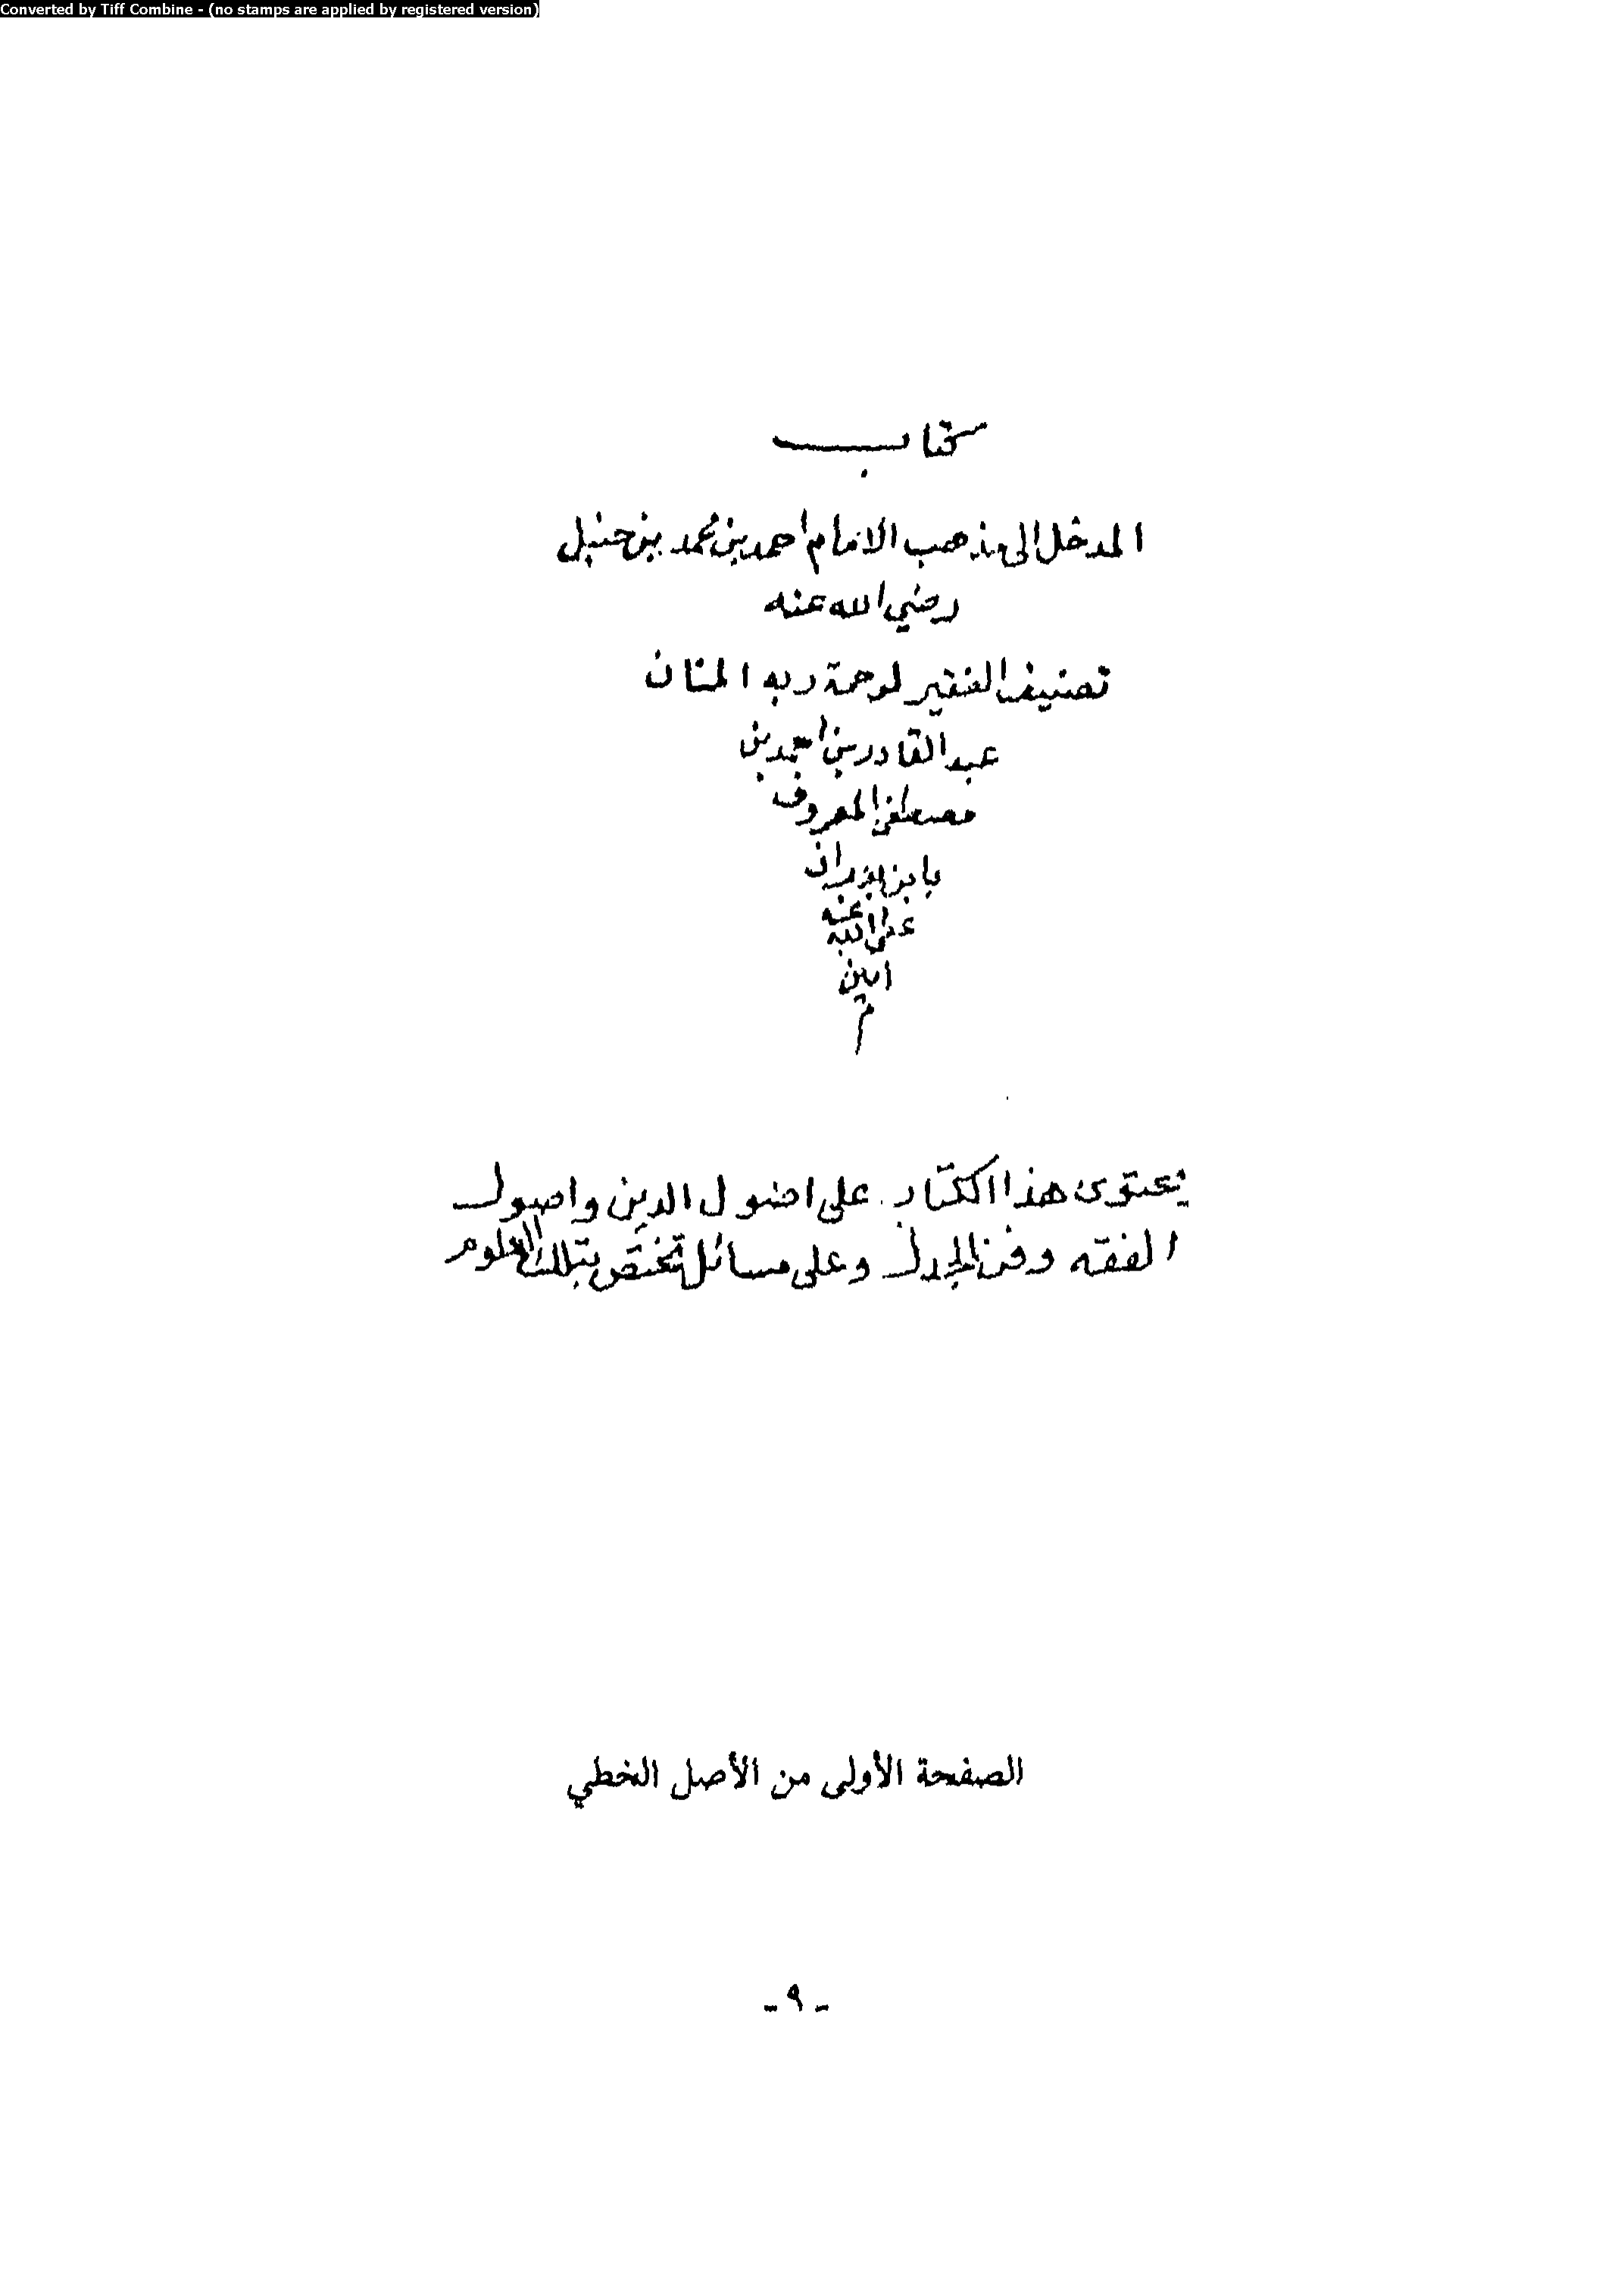 Converted by Tiff Combine - (no stamps are applied by registered version)
كتاب
المدخل الى مذهب الامام احمد بن محمد بن حنبل
رضي الله عنه
تصنيف الفقير لرحمة ربه المنان
عبد القادر بن احمد بن
مصطفى المعروف
بابن بدران
عفى الله عنه
امين
م
يحتوى هذا الكتاب على اصول الدين واصول
الفقه وفن الجدل وعلى مسائل تختص بتلك العلوم
الصفحة الأولى من الأصل الخطي
- ٩ -